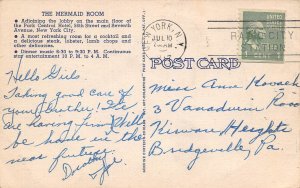 THE MERMAID ROOM
● Adjoining the lobby on the main floor of
the Park Central Hotel, 55th Street and Seventh
Avenue, New York City.
● A most refreshing room for a cocktail and
a delicious steak, lobster, lamb chops and
other delicacies.
● Dinner music 6:30 to 9:30. Continuous
star entertainment 10 P. M. to 4 A. M.
Hello Girls
Taking good care of
your Brother. Etc
are having fun. Will
be home in the
near future
NEW YORK, N.Y.
JUL
CITY
POST CARD
Miss Ann
3 Vanadium
Kirwan Heights
Bridgeville, Pa.